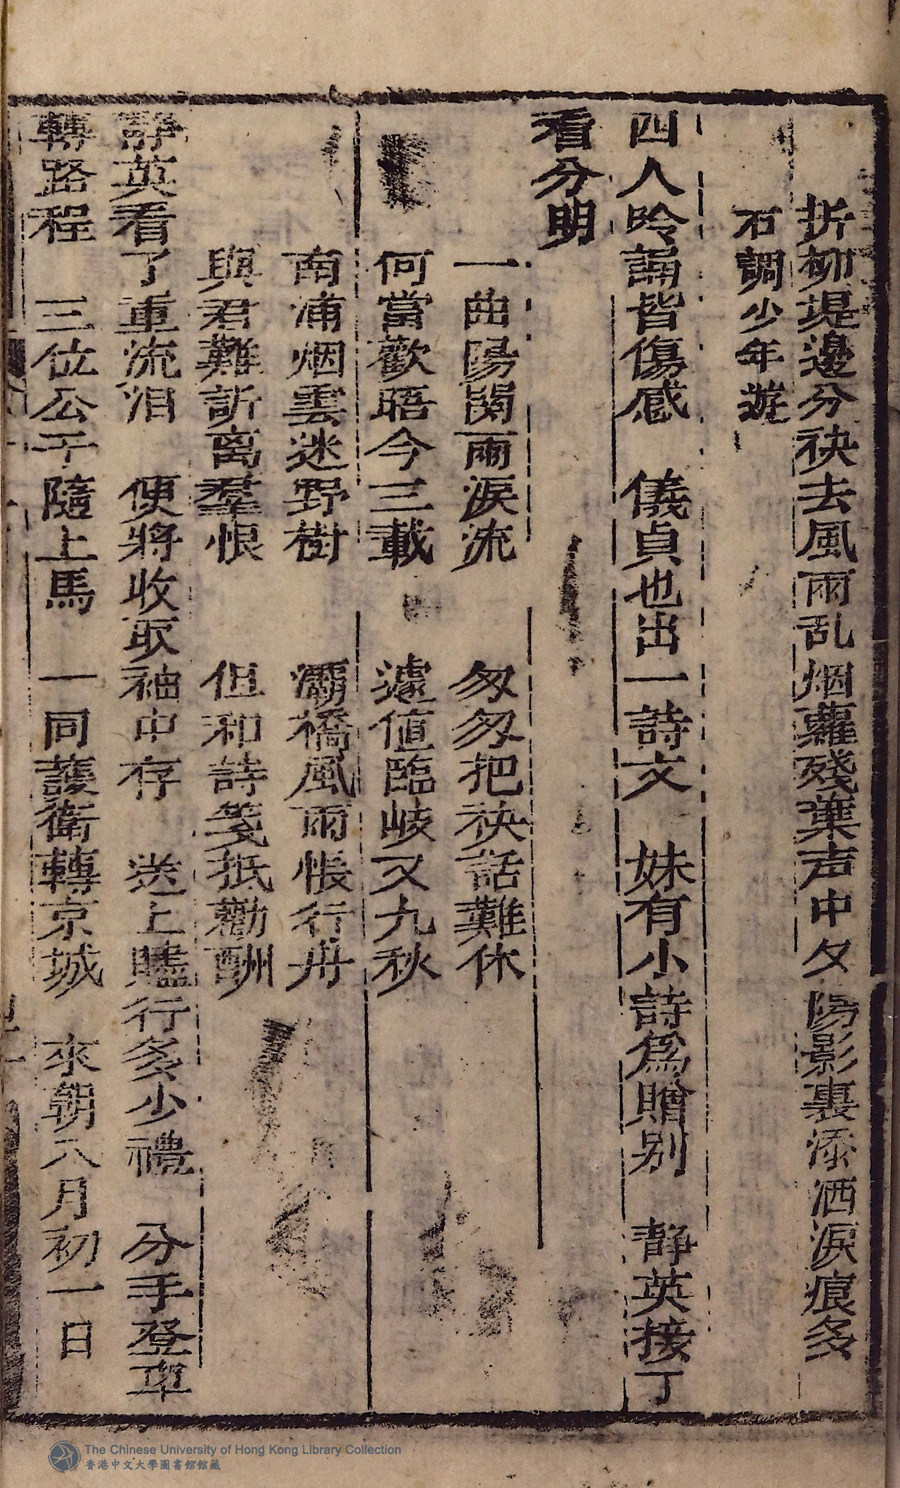 折柳堤邊分袂去風雨乱烟蘿殘葉声中夕陽影裏添洒淚痕多
石調少年遊
四人吟誦皆傷感　儀貞也出一詩文　妹有小詩爲贈别　靜英接了
看分明
一曲陽関雨淚流　匆匆把袂話難休
何當歡晤今三載　遽值臨岐又九秋
南浦烟雲迷野樹　灞橋風雨悵行舟
與君難訴离羣恨　但和詩箋抵勸酬
靜英看了重流泪　便將收取袖中存　送上贐行多少禮　分手登車
轉路程　三位公子隨上馬　一同護衛轉京城　來朝八月初一日
The Chinese University of Hong Kong Library Collection
香港中文大學圖書館館藏